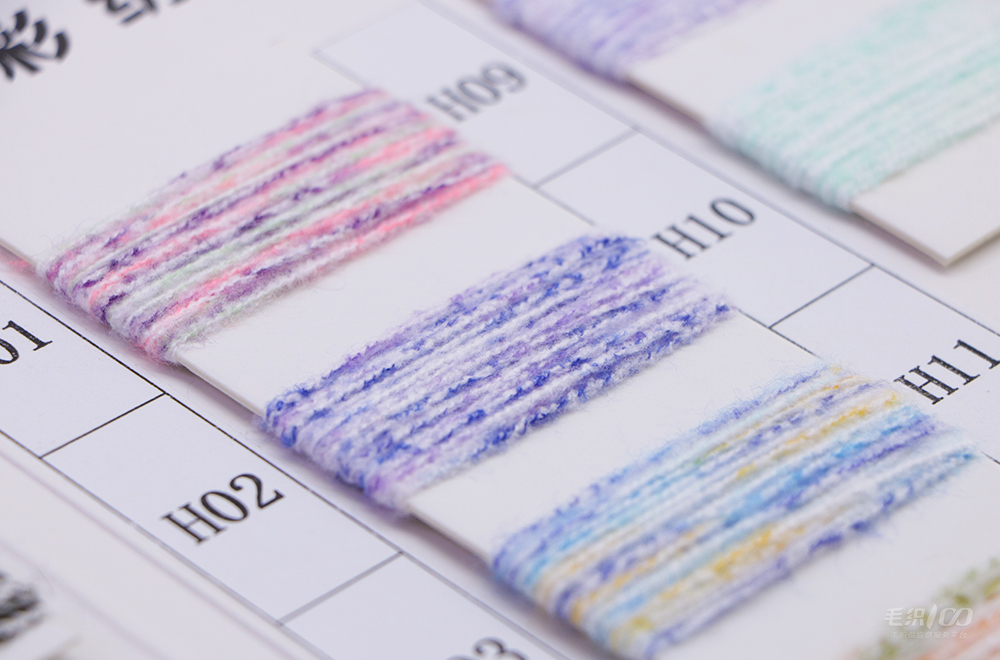 彩
H09
H10
H11
01
H02
03
毛织100